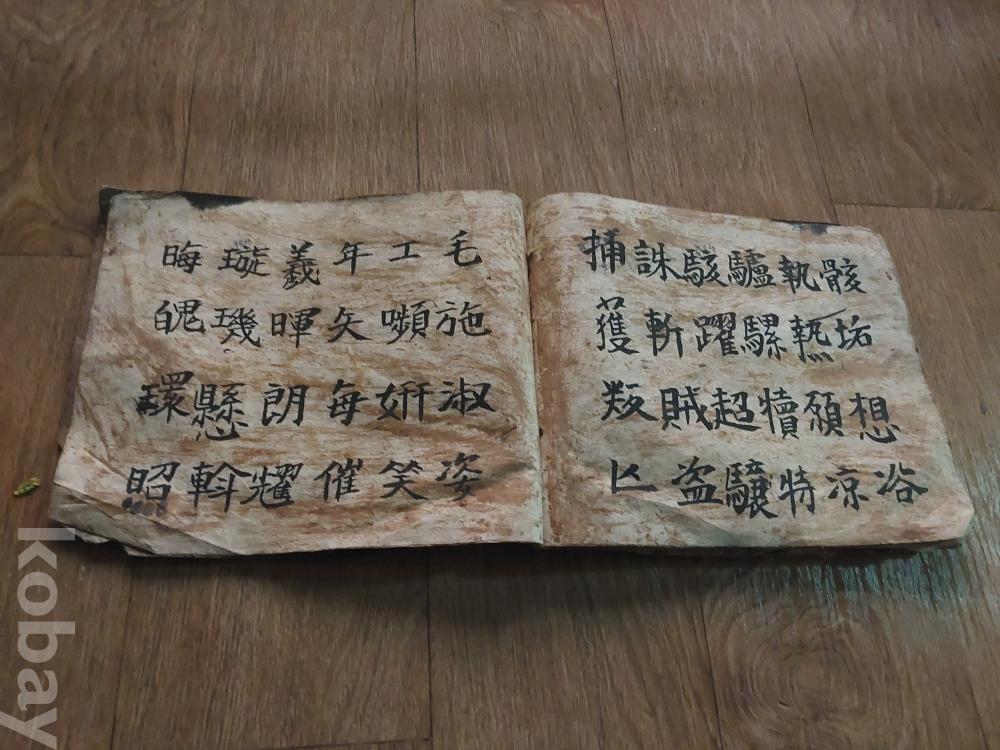 骸垢想浴
執熱願涼
驢騾犢特
駭躍超驤
誅斬賊盜
捕獲叛亡
毛施淑姿
工嚬姸笑
年矢每催
羲暉朗耀
璇璣懸斡
晦魄環照
kobay